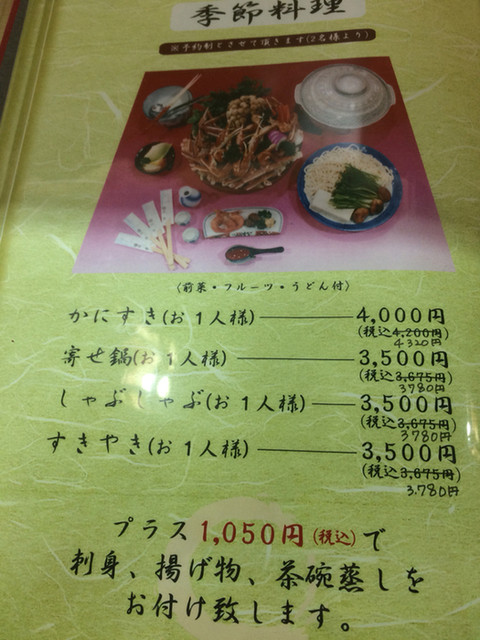 季節料理
※予約制とさせて頂きます(2名様より)
(前菜・フルーツ・うどん付)
かにすき(お1人様) 4,000円
(税込4,200円)
4320円
寄せ鍋(お1人様) 3,500円
(税込3,675円)
3780円
しゃぶしゃぶ(お1人様) 3,500円
(税込3,675円)
3780円
すきやき(お1人様) 3,500円
(税込3,675円)
3.780円
プラス1,050円(税込)で
刺身、揚げ物、茶碗蒸しを
お付け致します。